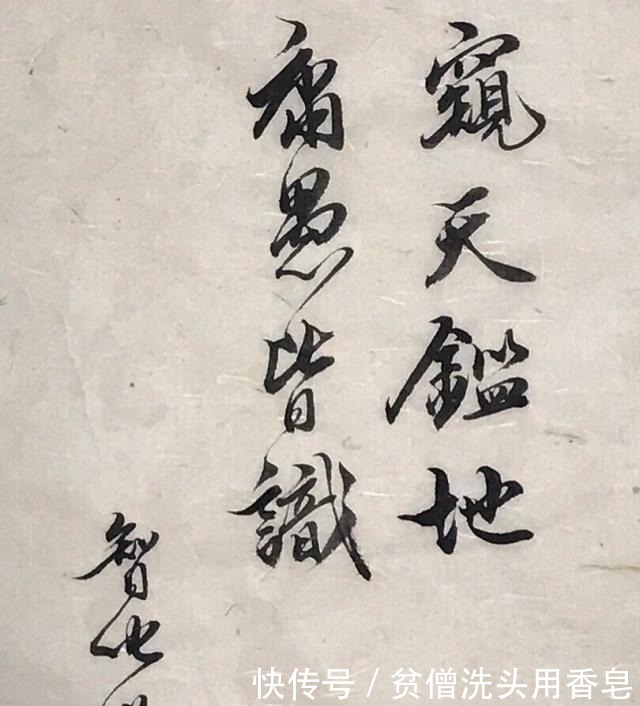 窺天鑑地
庸愚皆識
智化
快传号 / 贫僧洗头用香皂